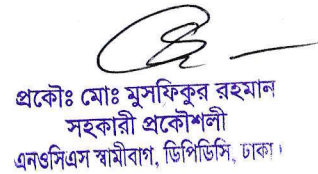 প্রকৌঃ মোঃ মুসফিকুর রহমান
সহকারী প্রকৌশলী
এনওসিএস স্বামীবাগ, ডিপিডিসি, ঢাকা।